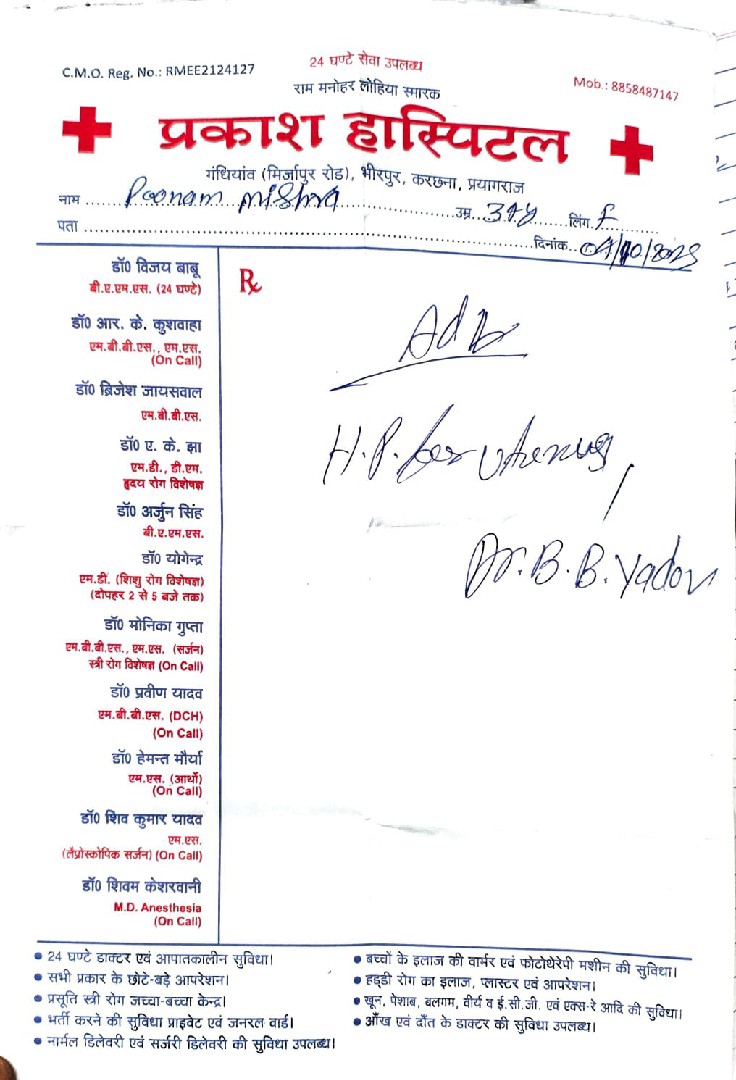 24 घण्टे सेवा उपलब्ध
C.M.O. Reg. No.: RMEE2124127
Mob.: 8858487147
राम मनोहर लोहिया स्मारक
प्रकाश हास्पिटल
गंधियांव (मिर्जापुर रोड), भीरपुर, करछना, प्रयागराज
नाम Poonam Mishra उम्र. लिंग. F
पता दिनांक..
डॉ0 विजय बाबू
बी.ए.एम.एस. (24 घण्टे)
डॉ0 आर. के. कुशवाहा
एम.बी.बी.एस., एम.एस.
(On Call)
डॉ0 ब्रिजेश जायसवाल
एम.बी.बी.एस.
डॉ0 ए. के. झा
एम.डी., डी.एम.
हृदय रोग विशेषज्ञ
डॉ0 अर्जुन सिंह
बी.ए.एम.एस.
डॉ0 योगेन्द्र
एम.डी. (शिशु रोग विशेषज्ञ)
(दोपहर 2 से 5 बजे तक)
डॉ0 मोनिका गुप्ता
एम.बी.बी.एस., एम.एस. (सर्जन)
स्त्री रोग विशेषज्ञ (On Call)
डॉ0 प्रवीण यादव
एम.बी.बी.एस. (DCH)
(On Call)
डॉ0 हेमन्त मौर्या
एम.एस. (आर्थो)
(On Call)
डॉ0 शिव कुमार यादव
एम.एस.
(लैप्रोस्कोपिक सर्जन) (On Call)
डॉ0 शिवम केशरवानी
M.D. Anesthesia
(On Call)
Rx
Adv
H.P. for uterus
Dr. B. B. Yadav
• 24 घण्टे डाक्टर एवं आपातकालीन सुविधा।
• सभी प्रकार के छोटे-बड़े आपरेशन।
• प्रसूति स्त्री रोग जच्चा-बच्चा केन्द्र।
• भर्ती करने की सुविधा प्राइवेट एवं जनरल वार्ड।
• नार्मल डिलेवरी एवं सर्जरी डिलेवरी की सुविधा उपलब्ध।
• बच्चों के इलाज की वार्मर एवं फोटोथेरेपी मशीन की सुविधा।
• हड्डी रोग का इलाज, प्लास्टर एवं आपरेशन।
• खून, पेशाब, बलगम, वीर्य व ई.सी.जी. एवं एक्स-रे आदि की सुविधा।
• आँख एवं दाँत के डाक्टर की सुविधा उपलब्ध।